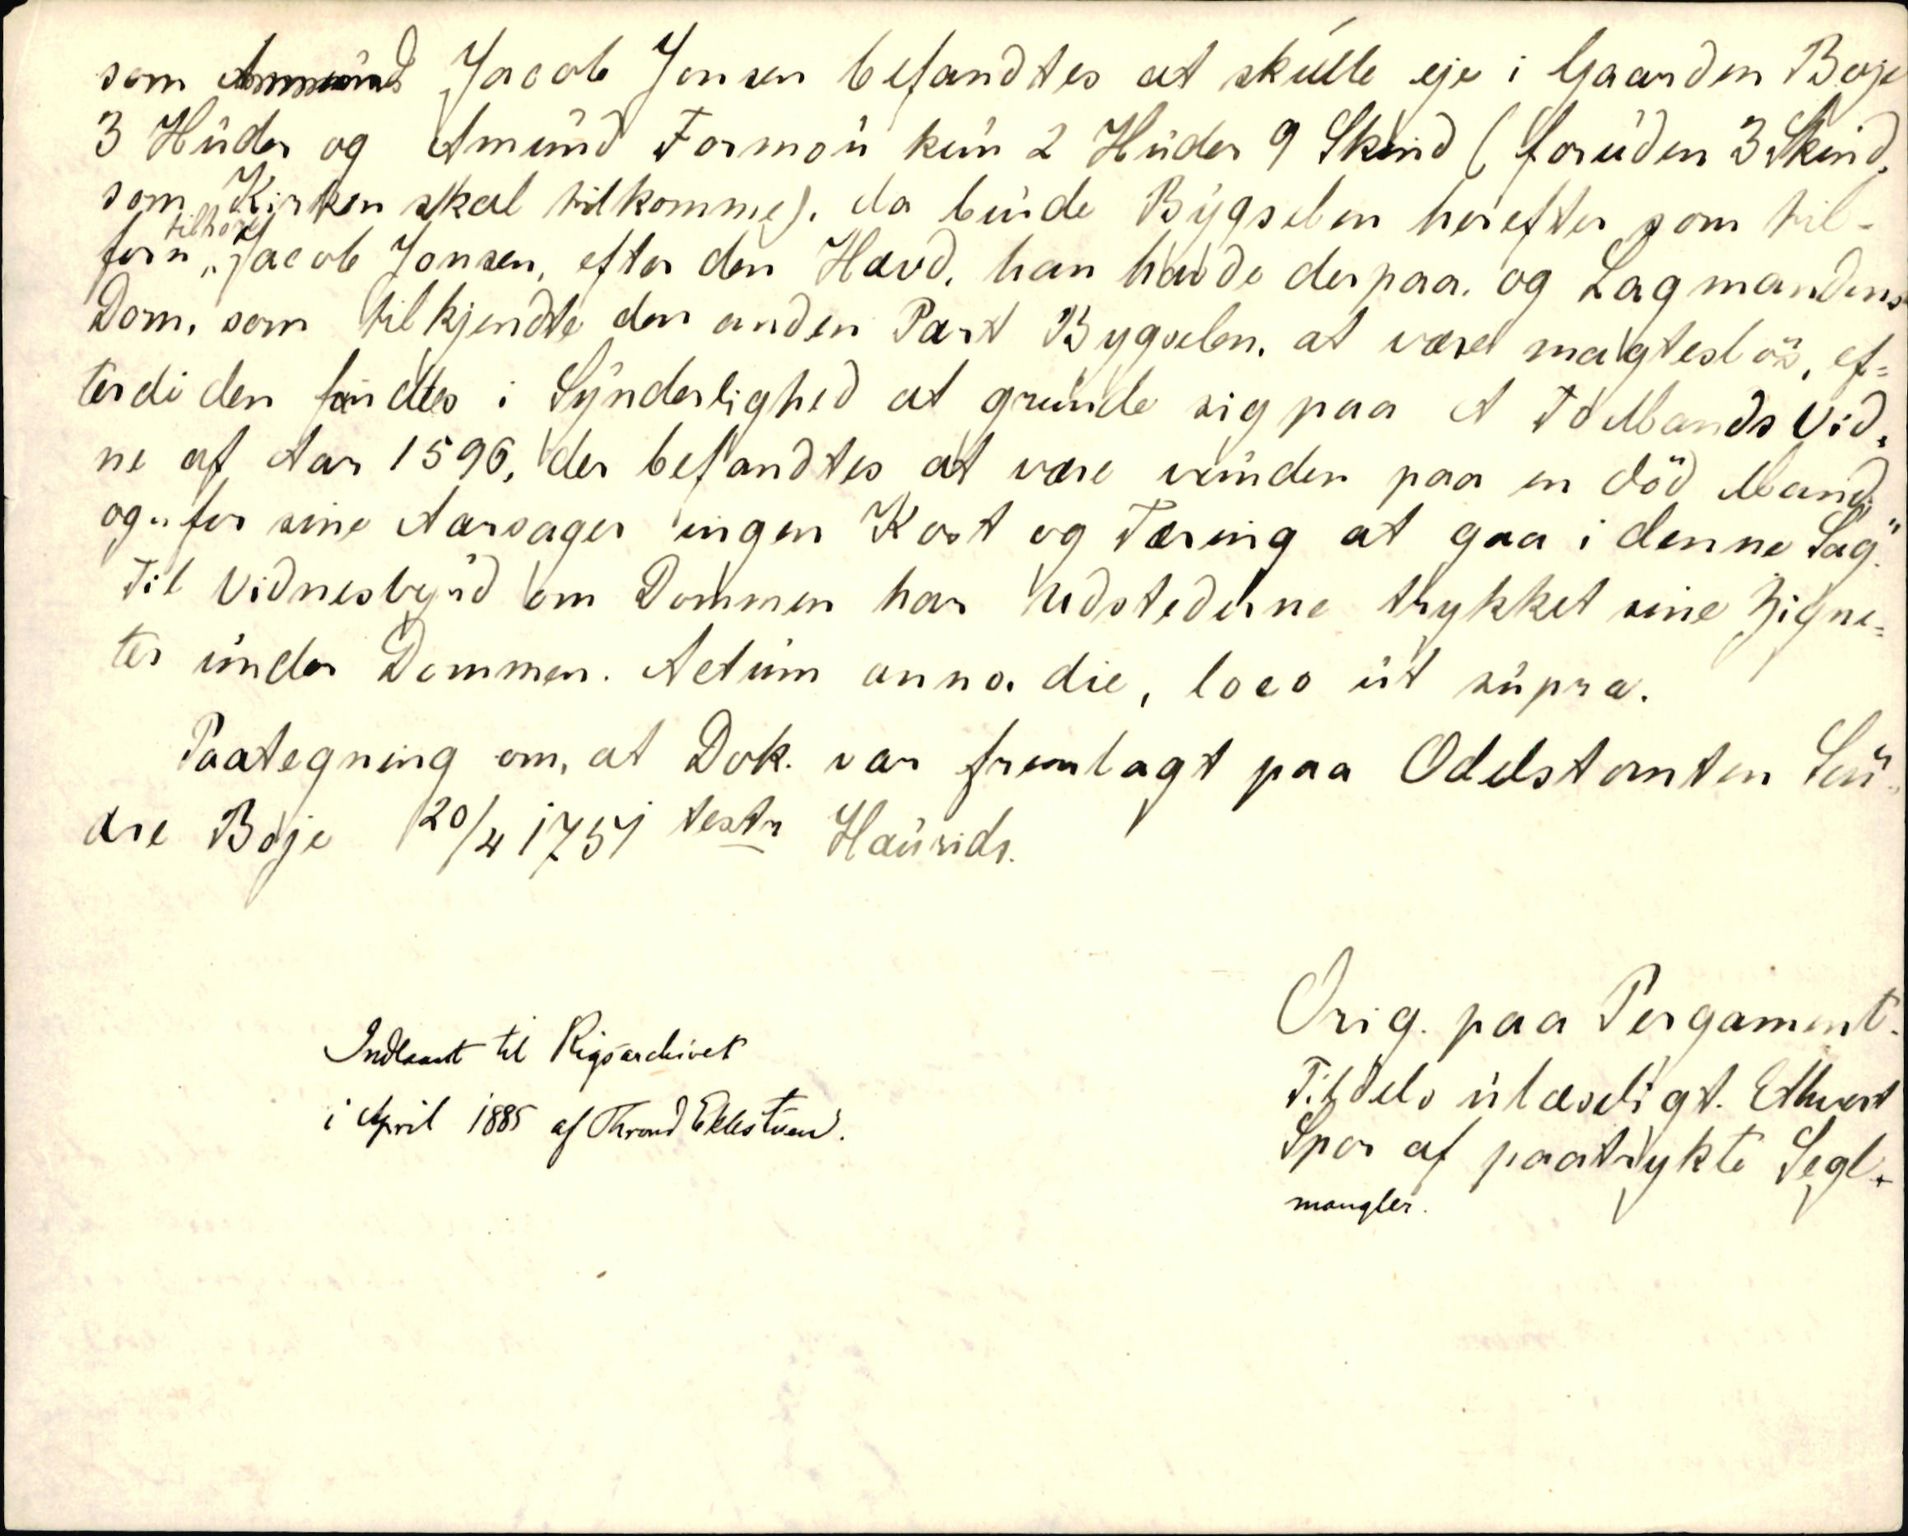 som Jacob Jonsen befandtes at skulle eje i Gaarden Boje
3 Huder og Amund Formou kun 2 Huder 9 Skind (foruden 3 Skind,
som Kirken skal tilkomme), da burde Bygselen herefter som til-
forn „tilhøre Jacob Jonsen, efter den Hævd, han havde derpaa, og Lagmandens
Dom, som tilkjendte den anden Part Bygselen, at være magteslös, ef=
terdi den fandtes i Synderlighed at grunde sig paa et Tolvmands Vid,
ne af Aar 1596, der befandtes at være vunden paa en död Mand,
og „for sine Aarsager ingen Kost og Tæring at gaa i denne Sag.”
Til Vidnesbyrd om Dommen har Udstederne trykket sine Zigne=
ter under Dommen. Actum anno, die, loco ut supra.
Paategning om, at Dok. var fremlagt paa Odelstomten Sun-
dre Boje 20/4 1751 test
Orig. paa Pergament.
Tildels ulæseligt. Ethvert
Spor af paatrykte Segl
mangler.
Indlaant til Rigsarchivet
i April 1885 af Thrond Eklestuen.